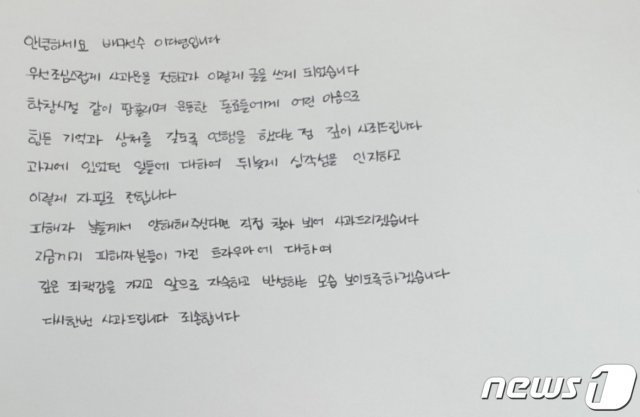 안녕하세요 배구선수 이다영입니다
우선조심스럽게 사과문을 전하고자 이렇게 글을 쓰게 되었습니다
학창시절 같이 땀흘리며 운동한 동료들에게 어린 마음으로
힘든 기억과 상처를 갖도록 언행을 했다는 점 깊이 사죄드립니다
과거에 있었던 일들에 대하여 뒤늦게 심각성을 인지하고
이렇게 자필로 전합니다
피해자 분들께서 양해해주신다면 직접 찾아 뵈어 사과드리겠습니다
지금까지 피해자분들이 가진 트라우마에 대하여
깊은 죄책감을 가지고 앞으로 자숙하고 반성하는 모습 보이도록하겠습니다
다시한번 사과드립니다 죄송합니다
news1